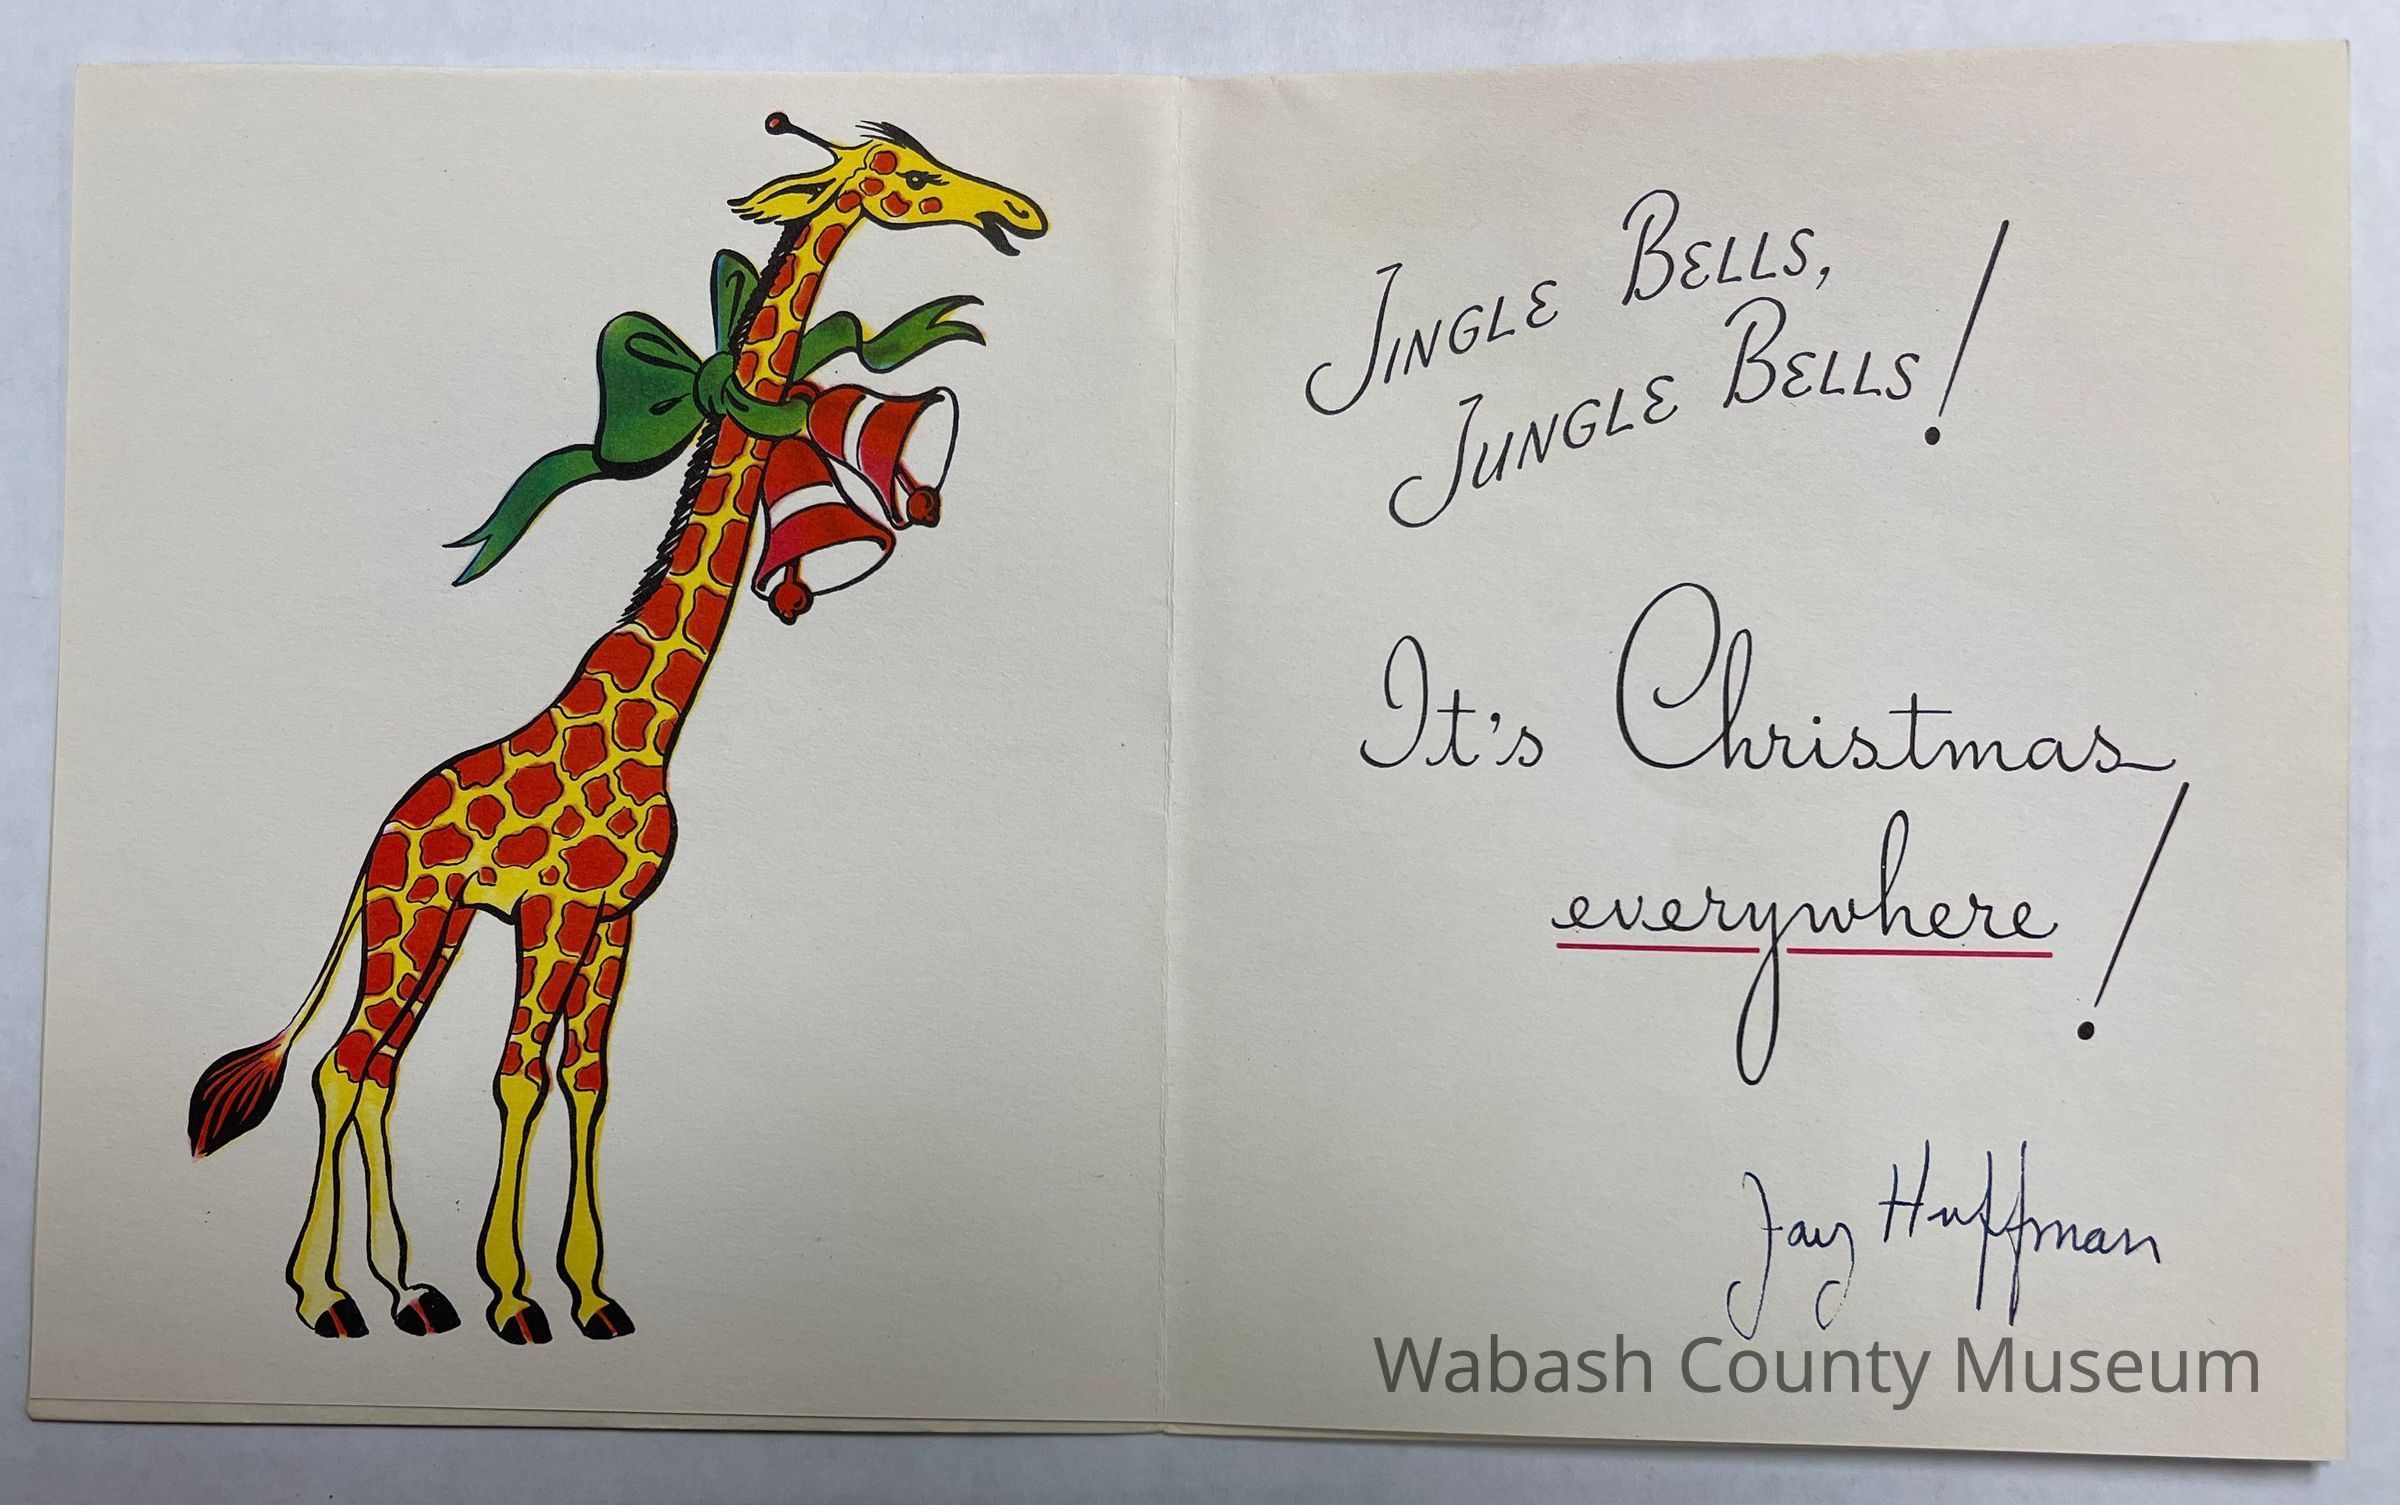 JINGLE BELLS,
JUNGLE BELLS!
It's Christmas
everywhere!
Jay Huffman
Wabash County Museum